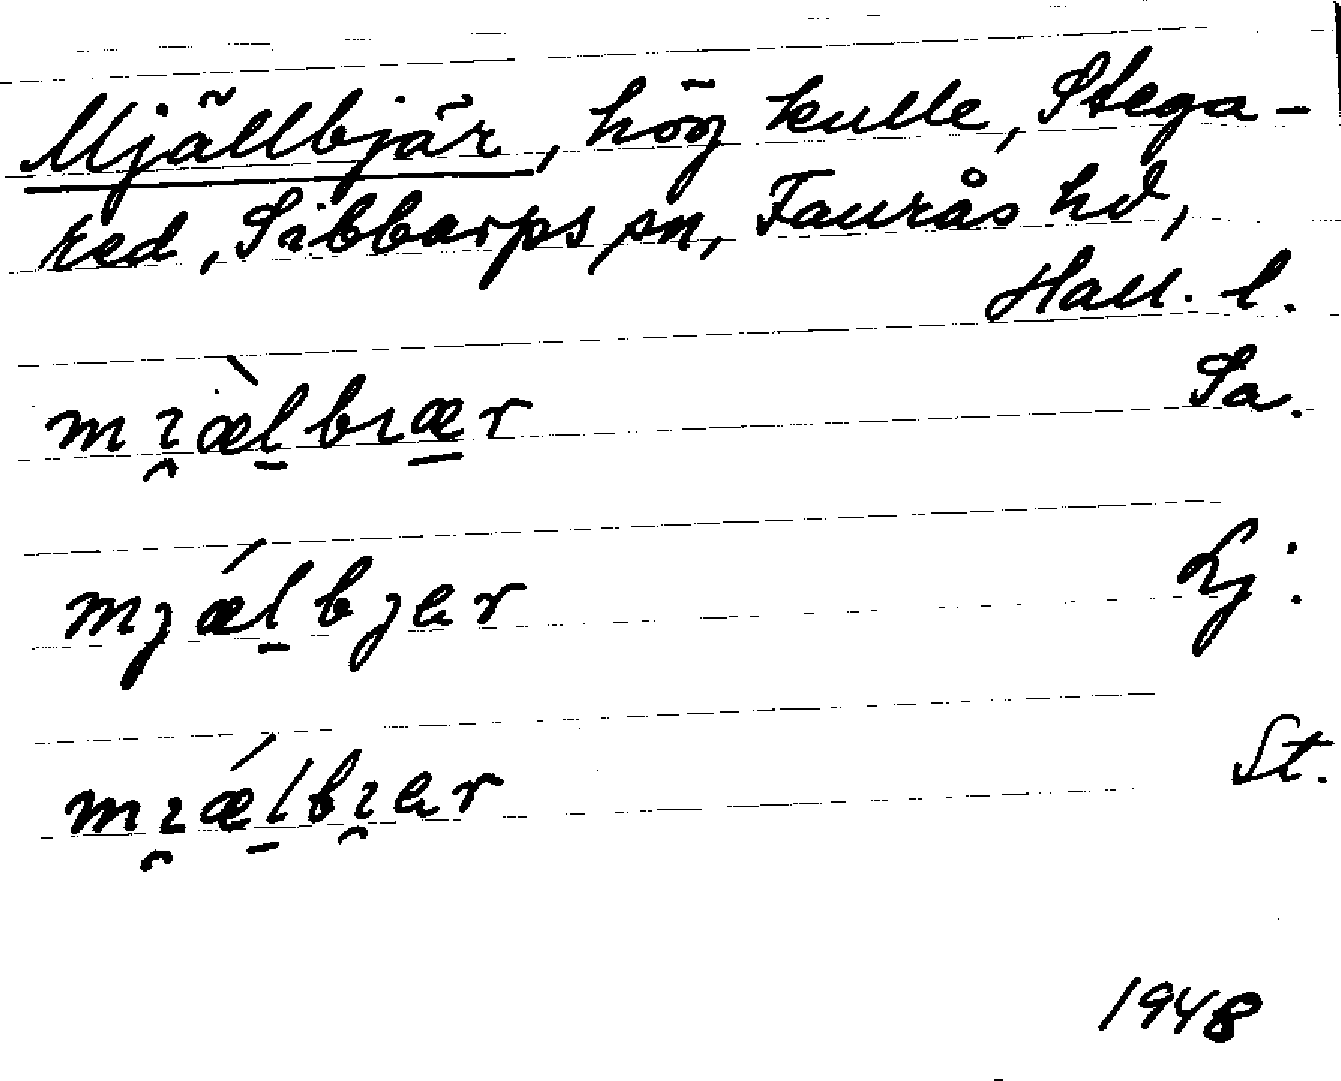 Mjällbjär, hög kulle, Stega-
red, Sibbarps sn, Faurås hd,
Hall. l.
mı̯æ̀l̠bıæ̠r Sa.
mjǽl̠bjɐr Lj:
mı̯ǽl̠bı̯ɐr St.
1948